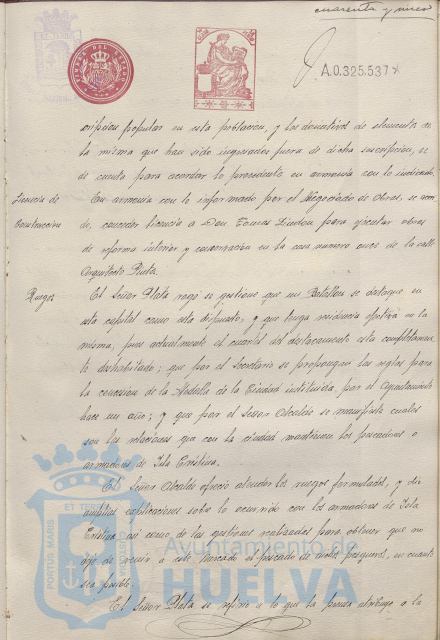 cuarenta y nueve
TIMBRE DEL ESTADO
A.0.325.537
cripción popular en esta población, y los donativos de elementos de
la misma que han sido ingresados fuera de dicha suscripción, se
de cuenta para acordar lo procedente en armonía con lo indicado.
Licencia de
Construcción
En armonía con lo informado por el Negociado de Obras, se acor-
dó, conceder licencia a Don Tomas para ejecutar obras
de reforma interior y conservación en la casa número once de la calle
Arquitecto Pinto.
Ruegos
El Señor Plata rogó se gestione que un Batallón se destaque en
esta capital como esta dispuesto, y que tenga residencia efectiva en la
misma, pues actualmente el cuartel del destacamento esta completamen-
te deshabitado; que por el Secretario se propongan las reglas para
la concesion de la Medalla de la Ciudad instituida por el Ayuntamiento
hace un año; y que por el Señor Alcalde se manifieste cuales
son las relaciones que con la ciudad mantienen los pescadores o
armadores de Isla Cristina.
El Señor Alcalde ofreció atender los ruegos formulados, y dió
amplias explicaciones sobre lo ocurrido con los armadores de Isla
Cristina así como de las gestiones realizadas para obtener que no
deje de venir a este mercado el pescado de dicho pesquero, en cuanto
sea posible.
El Señor Plata se refirió a lo que la prensa atribuye a la
PORTUS MARIS ET TERRAE CUSTODIA
Ayuntamiento de
HUELVA